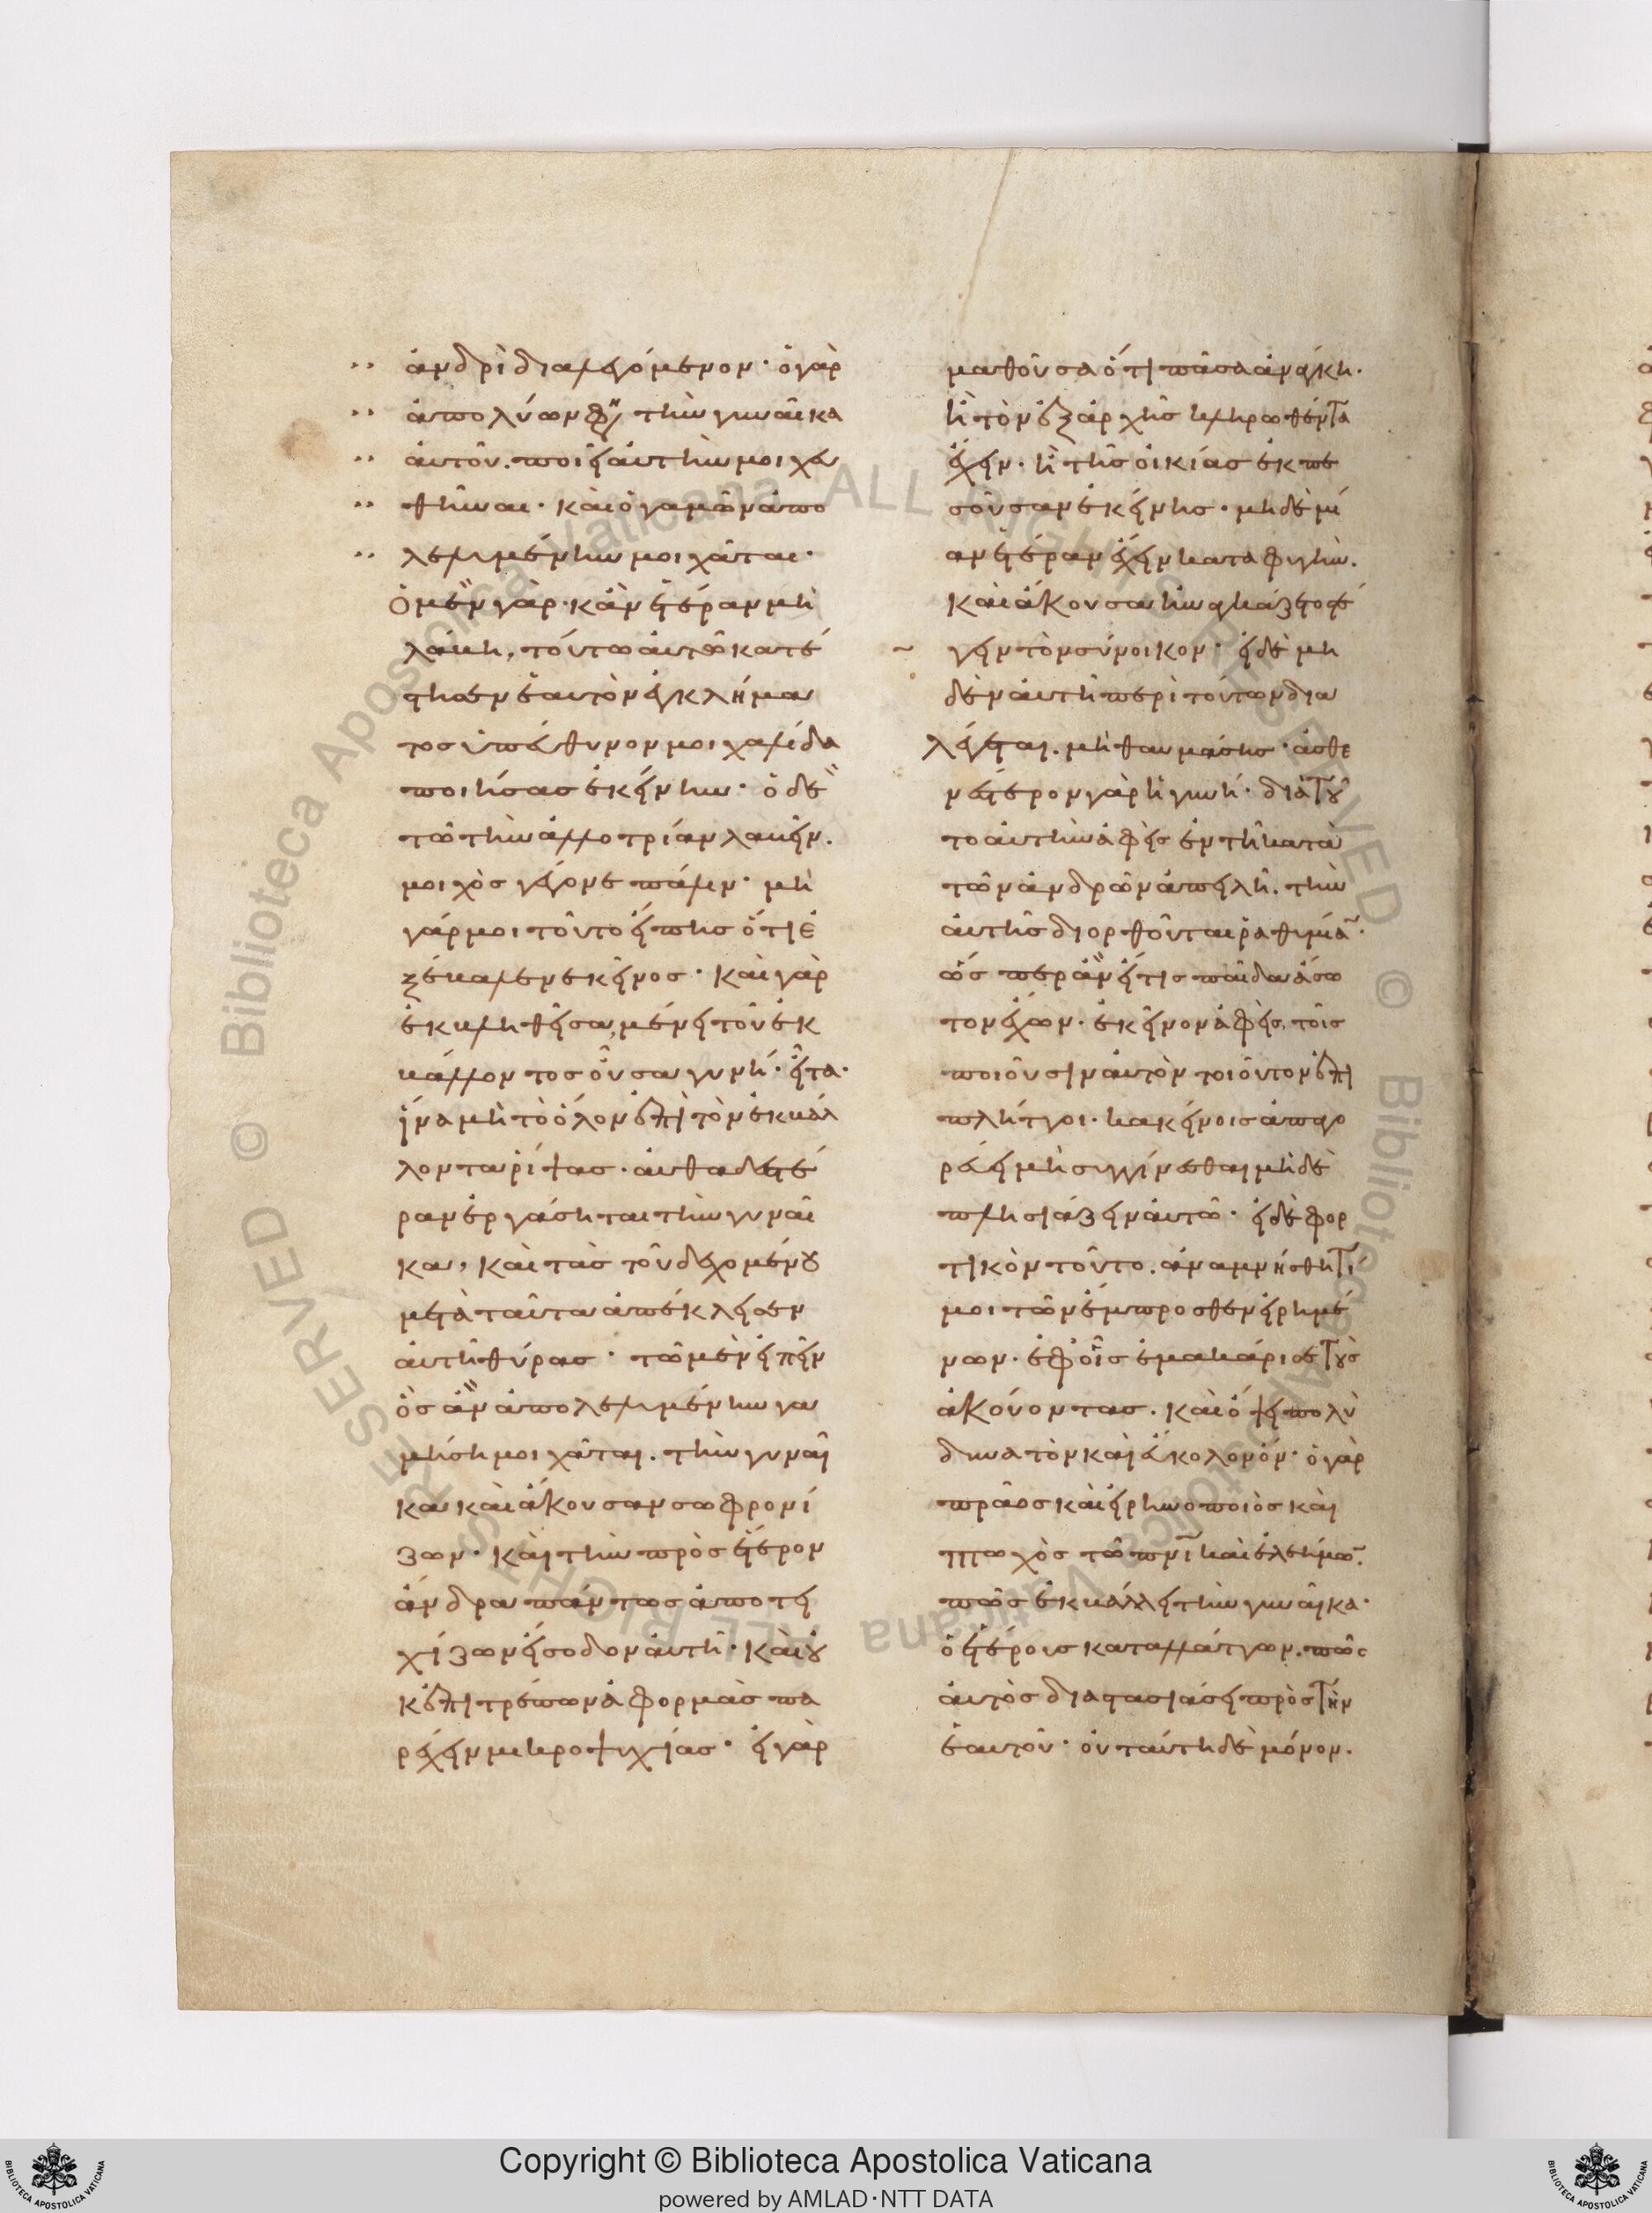 ἀνδρὶ διαλεγόμενον· ὁ γὰρ
ἀπολύων φη(σι) τὴν γυναῖκα
αὐτοῦ. ποιεῖ αὐτὴν μοιχευ
θῆναι· καὶ ὁ γαμῶν ἀπο
λελυμένην μοιχᾶται·
Ὁ μὲν γὰρ· κἂν ἑτέραν μὴ
λάβη, τούτω αὐτῶ κατέ
στησεν ἑαυτὸν ἐγκλήμα
τος ὑπεύθυνον μοιχαλίδα
ποιήσας ἐκείνην· ὁ δὲ
τῶ τὴν ἀλλοτρίαν λαβεῖν.
μοιχὸς γέγονε πάλιν· μὴ
γάρ μοι τοῦτο εἴπης ὅτι ἐ
ξέβαλεν ἐκεῖνος· καὶ γὰρ
ἐκβληθεῖσα, μένει τοῦ ἐκ
βάλλοντος οὖσα γυνή· εἶτα·
ἵνα μὴ τὸ ὅλον ἐπὶ τὸν ἐκβάλ
λοντα ῥίψας· αὐθαδεστέ
ραν ἐργάσηται τὴν γυναῖ
κα, καὶ τὰς τοῦ δεχομένου
μετὰ ταῦτα ἀπέκλεισεν
αὐτῆ θύρας· τῶ μὲν εἰπεῖν
ὃς ἂν ἀπολελυμένην γα
μήση μοιχᾶται. τὴν γυναῖ
κα καὶ ἄκουσαν σωφρονί
ζων· καὶ τὴν πρὸς ἕτερον
ἄνδρα πάντως ἀποτει
χίζων εἴσοδον αὐτῆ· καὶ οὐ
κ ἐπιτρέπων ἀφορμὰς πα
ρέχειν μικροψυχίας· εἰ γὰρ
μαθοῦσα ὅτι πᾶσα ἀνάγκη·
ἢ τὸν ἐξαρχῆς κληρωθέντα
ἔχειν· ἢ τῆς οἰκίας ἐκπε
σοῦσαν ἐκείνης· μηδὲ μί
αν ἑτέραν ἔχειν καταφυγήν.
καὶ ἄκουσα ἠναγκάζετο στέ
γειν τὸν σύνοικον· εἰ δὲ μη
δὲν αὐτῆ περὶ τούτων δια
λέγεται. μὴ θαυμάσης· ἀσθε
νέστερον γὰρ ἡ γυνή· διὰ τοῦ
το αὐτὴν ἀφεὶς ἐν τῆ κατὰ
τῶν ἀνδρῶν ἀπειλῆ. τὴν
αὐτῆς διορθοῦται ῥαθυμία(ν)·
ὥσπερ ἂν εἴ τις παῖδα ἄσω
τον ἔχων· ἐκεῖνον ἀφεὶς, τοῖς
ποιοῦσιν αὐτὸν τοιοῦτον ἐπι
πλήττοι· κἀκείνοις ἀπαγο
ρεύει μὴ συγγίνεσθαι μὴδὲ
πλησιάζειν αὐτῶ· εἰ δὲ φορ
τικὸν τοῦτο. ἀναμνήσθητί
μοι τῶν ἔμπροσθεν εἰρημέ
νων· ἐφ' οἷς ἐμακάριζε τοὺς
ἀκούοντας. καὶ ὄψει πολὺ
δυνατὸν καὶ εὔκολον ὄν· ὁ γὰρ
πρᾶος καὶ εἰρηνοποιὸς καὶ
πτωχὸς τῶ πν(εύματ)ι καὶ ἐλεήμω(ν).
πῶς ἐκβάλλει τὴν γυναῖκα·
ὁ ἑτέρους καταλλάττων. πῶς
αὐτὸς διαστασιάσει πρὸς τὴν
ἑαυτοῦ· οὐ ταύτη δὲ μόνον.
Copyright © Biblioteca Apostolica Vaticana
powered by AMLAD·NTT DATA